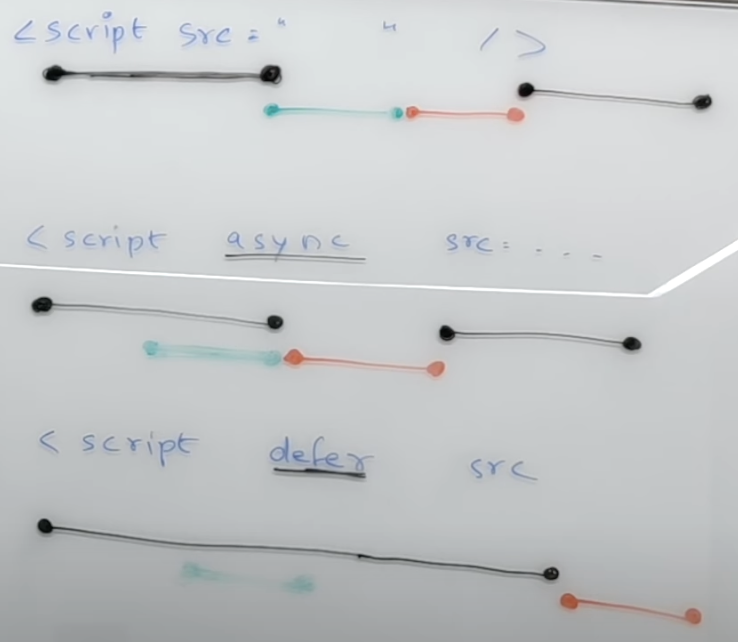 <script src=" " />
<script async src= ....
<script defer src